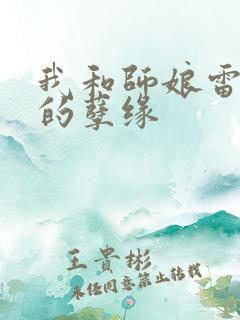 我和師娘雷
的孽缘
王貴彬
未任同意禁止转载